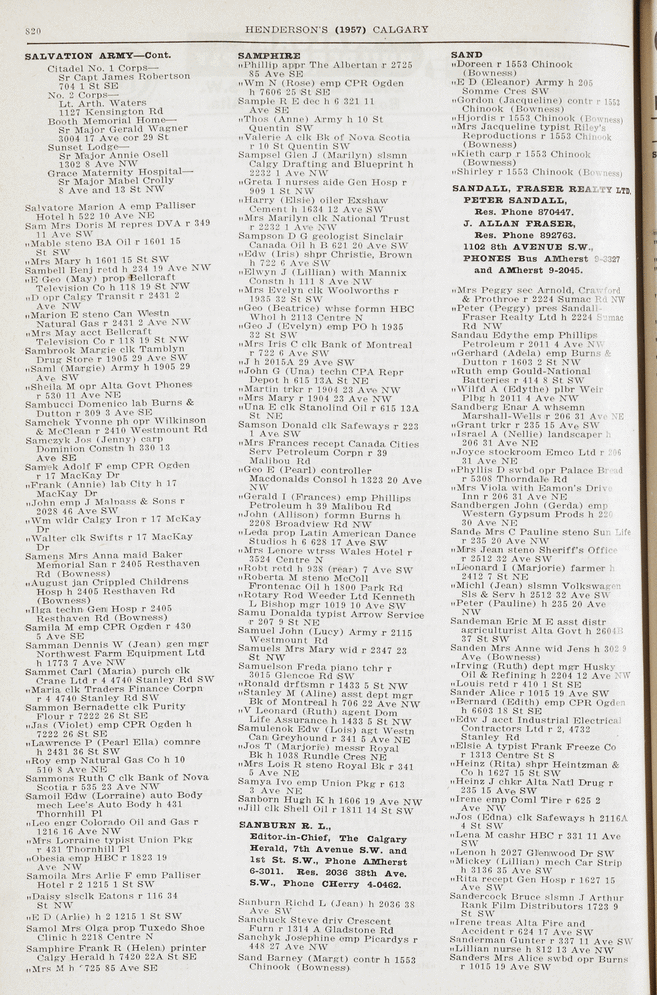 820
HENDERSON'S (1957) CALGARY
SALVATION ARMY—Cont.
Citadel No. 1 Corps—
Sr Capt James Robertson
704 1 St SE
No. 2 Corps—
Lt. Arth. Waters
1127 Kensington Rd
Booth Memorial Home—
Sr Major Gerald Wagner
3004 17 Ave cor 29 St
Sunset Lodge—
Sr Major Annie Osell
1302 8 Ave NW
Grace Maternity Hospital—
Sr Major Mabel Crolly
8 Ave and 13 St NW
Salvatore Marion A emp Palliser
Hotel h 522 10 Ave NE
Sam Mrs Doris M repres DVA r 349
11 Ave SW
„Mable steno BA Oil r 1601 15
St SW
„Mrs Mary h 1601 15 St SW
Sambell Benj retd h 234 19 Ave NW
„E Geo (May) prop Bellcraft
Television Co h 118 19 St NW
„D opr Calgy Transit r 2431 2
Ave NW
„Marion E steno Can Westn
Natural Gas r 2431 2 Ave NW
„Mrs May acct Bellcraft
Television Co r 118 19 St NW
Sambrook Margie clk Tamblyn
Drug Store r 1905 29 Ave SW
„Saml (Margie) Army h 1905 29
Ave SW
„Sheila M opr Alta Govt Phones
r 530 11 Ave NE
Sambucci Domenico lab Burns &
Dutton r 309 3 Ave SE
Samchek Yvonne ph opr Wilkinson
& McClean r 2410 Westmount Rd
Samczyk Jos (Jenny) carp
Dominion Constn h 330 13
Ave SE
Samek Adolf F emp CPR Ogden
r 17 MacKay Dr
„Frank (Annie) lab City h 17
MacKay Dr
„John emp J Malbass & Sons r
2028 46 Ave SW
„Wm wldr Calgy Iron r 17 McKay
Dr
„Walter clk Swifts r 17 MacKay
Dr
Samens Mrs Anna maid Baker
Memorial San r 2405 Resthaven
Rd (Bowness)
„August jan Crippled Childrens
Hosp h 2405 Resthaven Rd
(Bowness)
„Ilga techn Gen Hosp r 2405
Resthaven Rd (Bowness)
Samila M emp CPR Ogden r 430
5 Ave SE
Samman Dennis W (Jean) gen mgr
Northwest Farm Equipment Ltd
h 1773 7 Ave NW
Sammet Carl (Maria) purch clk
Crane Ltd r 4 4740 Stanley Rd SW
„Maria clk Traders Finance Corpn
r 4 4740 Stanley Rd SW
Sammon Bernadette clk Purity
Flour r 7222 26 St SE
„Jas (Violet) emp CPR Ogden h
7222 26 St SE
„Lawrence P (Pearl Ella) comnre
h 2431 36 St SW
„Roy emp Natural Gas Co h 10
510 8 Ave NE
Sammons Ruth C clk Bank of Nova
Scotia r 535 23 Ave NW
Samoil Edw (Lorraine) auto body
mech Lee's Auto Body h 431
Thornhill Pl
„Leo engr Colorado Oil and Gas r
1216 16 Ave NW
„Mrs Lorraine typist Union Pkg
r 431 Thornhill Pl
„Obesia emp HBC r 1823 19
Ave NW
Samoila Mrs Arlie F emp Palliser
Hotel r 2 1215 1 St SW
„Daisy slsclk Eatons r 116 34
St NW
„E D (Arlie) h 2 1215 1 St SW
Samol Mrs Olga prop Tuxedo Shoe
Clinic h 2218 Centre N
Samphire Frank R (Helen) printer
Calgy Herald h 7420 22A St SE
„Mrs M h 725 85 Ave SE
SAMPHIRE
„Phillip appr The Albertan r 2725
85 Ave SE
„Wm N (Rose) emp CPR Ogden
h 7606 25 St SE
Sample R E dec h 6 321 11
Ave SE
„Thos (Anne) Army h 10 St
Quentin SW
„Valerie A clk Bk of Nova Scotia
r 10 St Quentin SW
Sampsel Glen J (Marilyn) slsmn
Calgy Drafting and Blueprint h
2232 1 Ave NW
„Greta I nurses aide Gen Hosp r
909 1 St NW
„Harry (Elsie) oiler Exshaw
Cement h 1634 12 Ave SW
„Mrs Marilyn clk National Trust
r 2232 1 Ave NW
Sampson D G geologist Sinclair
Canada Oil h B 621 20 Ave SW
„Edw (Iris) shpr Christie, Brown
h 722 6 Ave SW
„Elwyn J (Lillian) with Mannix
Constn h 111 8 Ave NW
„Mrs Evelyn clk Woolworths r
1935 32 St SW
„Geo (Beatrice) whse formn HBC
Whol h 2113 Centre N
„Geo J (Evelyn) emp PO h 1935
32 St SW
„Mrs Iris C clk Bank of Montreal
r 722 6 Ave SW
„J h 2015A 29 Ave SW
„John G (Una) techn CPA Repr
Depot h 615 13A St NE
„Martin trkr r 1904 23 Ave NW
„Mrs Mary r 1904 23 Ave NW
„Una E clk Stanolind Oil r 615 13A
St NE
Samson Donald clk Safeways r 223
1 Ave SW
„Mrs Frances recept Canada Cities
Serv Petroleum Corpn r 39
Malibou Rd
„Geo E (Pearl) controller
Macdonalds Consol h 1323 20 Ave
NW
„Gerald I (Frances) emp Phillips
Petroleum h 39 Malibou Rd
„John (Allison) formn Burns h
2208 Broadview Rd NW
„Leda prop Latin American Dance
Studios h 6 628 17 Ave SW
„Mrs Lenore wtrss Wales Hotel r
3524 Centre N
„Robt retd h 938 (rear) 7 Ave SW
„Roberta M steno McColl
Frontenac Oil h 1800 Park Rd
„Rotary Rod Weeder Ltd Kenneth
L Bishop mgr 1019 10 Ave SW
Samu Donalda typist Arrow Service
r 207 9 St NE
Samuel John (Lucy) Army r 2115
Westmount Rd
Samuels Mrs Mary wid r 2347 23
St NW
Samuelson Freda piano tchr r
3015 Glencoe Rd SW
„Ronald drftsmn r 1433 5 St NW
„Stanley M (Aline) asst dept mgr
Bk of Montreal h 706 22 Ave NW
„V Leonard (Ruth) agent Dom
Life Assurance h 1433 5 St NW
Samulenok Edw (Lois) agt Westn
Can Greyhound r 341 5 Ave NE
„Jos T (Marjorie) messr Royal
Bk h 1038 Rundle Cres NE
„Mrs Lois R steno Royal Bk r 341
5 Ave NE
Samya Ivo emp Union Pkg r 613
3 Ave NE
Sanborn Hugh K h 1606 19 Ave NW
„Jill clk Shell Oil r 1811 14 St SW
SANBURN R. L.,
Editor-in-Chief, The Calgary
Herald, 7th Avenue S.W. and
1st St. S.W., Phone AMherst
6-3011. Res. 2036 38th Ave.
S.W., Phone CHerry 4-0462.
Sanburn Richd L (Jean) h 2036 38
Ave SW
Sanchuck Steve driv Crescent
Furn r 1314 A Gladstone Rd
Sanchyk Josephine emp Picardys r
448 27 Ave NW
Sand Barney (Margt) contr h 1553
Chinook (Bowness)
SAND
„Doreen r 1553 Chinook
(Bowness)
„E D (Eleanor) Army h 205
Somme Cres SW
„Gordon (Jacqueline) contr r 1553
Chinook (Bowness)
„Hjordis r 1553 Chinook (Bowness)
„Mrs Jacqueline typist Riley's
Reproductions r 1553 Chinook
(Bowness)
„Kieth carp r 1553 Chinook
(Bowness)
„Shirley r 1553 Chinook (Bowness)
SANDALL, FRASER REALTY LTD.
PETER SANDALL,
Res. Phone 870447.
J. ALLAN FRASER,
Res. Phone 892763.
1102 8th AVENUE S.W.,
PHONES Bus AMherst 9-3327
and AMherst 9-2045.
„Mrs Peggy sec Arnold, Crawford
& Prothroe r 2224 Sumac Rd NW
„Peter (Peggy) pres Sandall-
Fraser Realty Ltd h 2224 Sumac
Rd NW
Sandau Edythe emp Phillips
Petroleum r 2011 4 Ave NW
„Gerhard (Adela) emp Burns &
Dutton r 1603 2 St NW
„Ruth emp Gould-National
Batteries r 414 8 St SW
„Wilfd A (Edythe) plbr Weir
Plbg h 2011 4 Ave NW
Sandberg Enar A whsemn
Marshall-Wells r 206 31 Ave NE
„Grant trkr r 235 15 Ave SW
„Israel A (Nellie) landscaper h
206 31 Ave NE
„Joyce stockroom Emco Ltd r 206
31 Ave NE
„Phyllis D swbd opr Palace Bread
r 5308 Thorndale Rd
„Mrs Viola with Eamon's Drive
Inn r 206 31 Ave NE
Sandbergen John (Gerda) emp
Western Gypsum Prods h 220
30 Ave NE
Sande Mrs C Pauline steno Sun Life
r 235 20 Ave NW
„Mrs Jean steno Sheriff's Office
r 2512 32 Ave SW
„Leonard I (Marjorie) farmer h
2412 7 St NE
„Michl (Jean) slsmn Volkswagen
Sls & Serv h 2512 32 Ave SW
„Peter (Pauline) h 235 20 Ave
NW
Sandeman Eric M E asst distr
agriculturist Alta Govt h 2604B
37 St SW
Sanden Mrs Anne wid Jens h 302 9
Ave (Bowness)
„Irving (Ruth) dept mgr Husky
Oil & Refining h 2204 12 Ave NW
„Louis retd r 410 1 St SE
Sander Alice r 1015 19 Ave SW
„Bernard (Edith) emp CPR Ogden
h 6603 18 St SE
„Edw J acct Industrial Electrical
Contractors Ltd r 2, 4732
Stanley Rd
„Elsie A typist Frank Freeze Co
r 1313 Centre St S
„Heinz (Rita) shpr Heintzman &
Co h 1627 15 St SW
„Heinz J chkr Alta Natl Drug r
235 15 Ave SW
„Irene emp Coml Tire r 625 2
Ave NW
„Jos (Edna) clk Safeways h 2116A
4 St SW
„Lena M cashr HBC r 331 11 Ave
SW
„Lenon h 2027 Glenwood Dr SW
„Mickey (Lillian) mech Car Strip
h 3136 35 Ave SW
„Rita recept Gen Hosp r 1627 15
Ave SW
Sandercock Bruce slsmn J Arthur
Rank Film Distributors 1723 9
St SW
„Irene treas Alta Fire and
Accident r 624 17 Ave SW
Sanderman Gunter r 337 11 Ave SW
„Lillian nurse h 812 13 Ave NW
Sanders Mrs Alice swbd opr Burns
r 1015 19 Ave SW